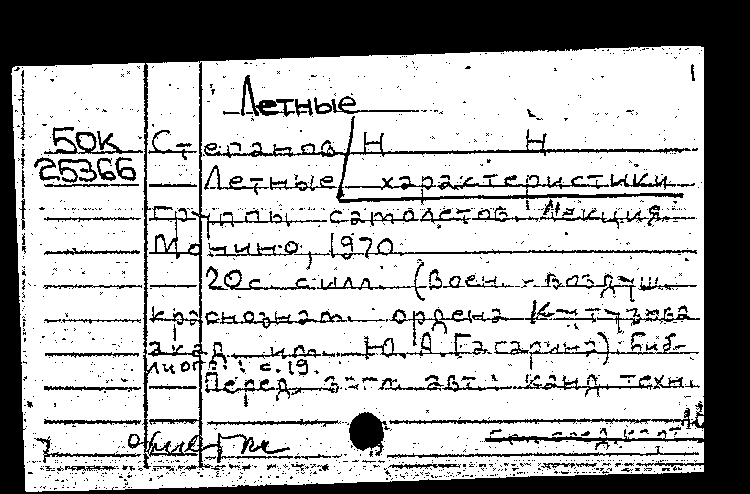 Летные
50К Степанов Н Н
25366 Летные характеристики
группы самолетов. Лекция.
Монино, 1970.
20с. с илл. (Воен.-воздуш.
краснознам. ордена Кутузова
акад. им. Ю.А. Гагарина). Биб-
лиогр.: с.19.
Перед загл. авт.: канд. техн.